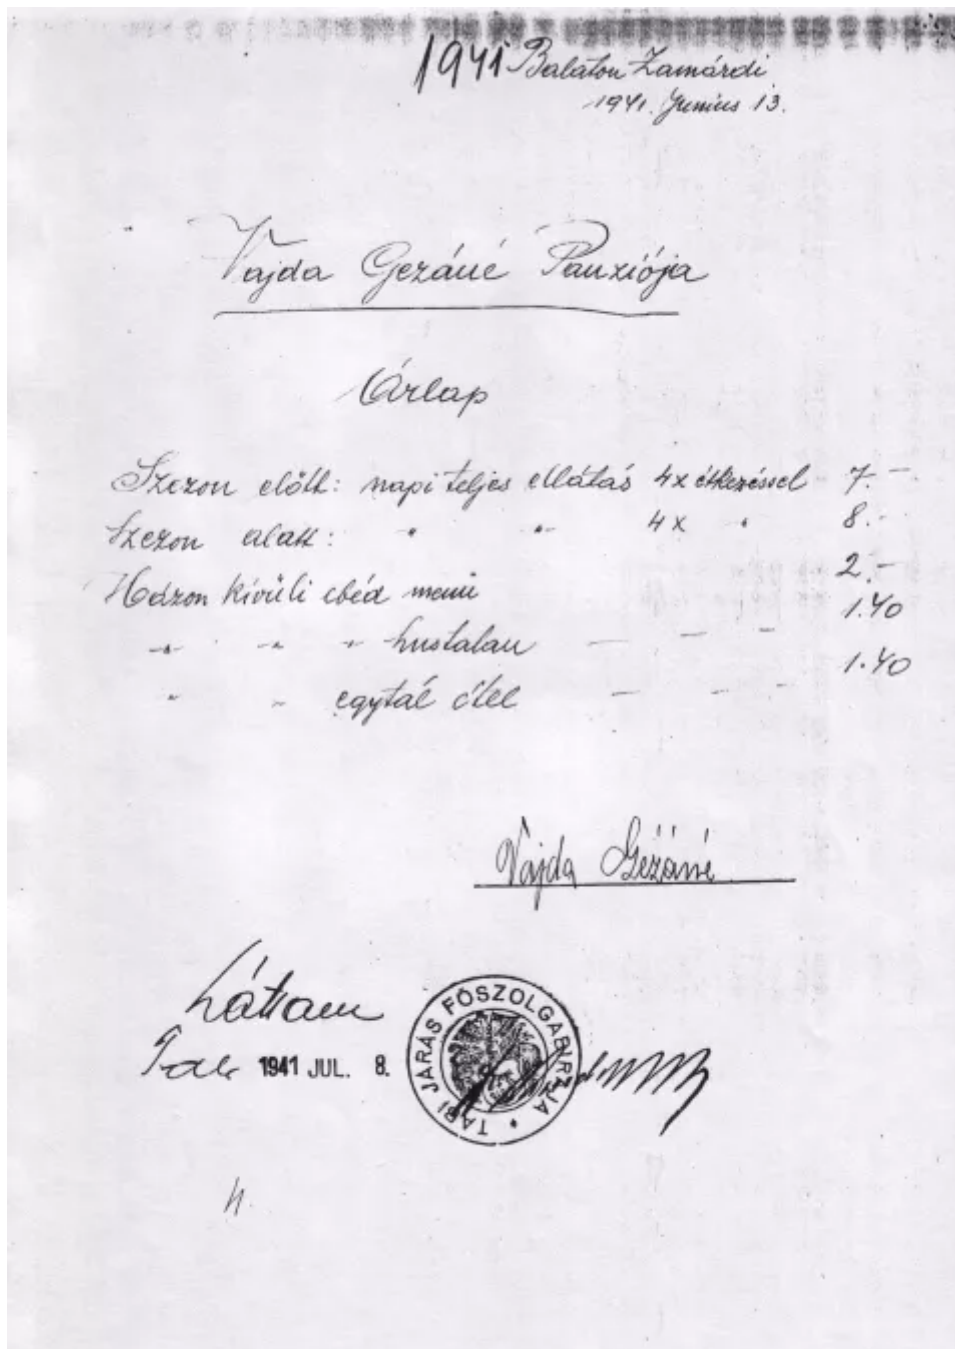 1941 Balaton Zamárdi
1941. Junius 13.
Vajda Gezáné Panziója
Árlap
Szezon előtt: napi teljes ellátás 4x étkezéssel 7.-
Szezon alatt: " -"- 4x " 8.-
Házon kivüli ebéd menü 2.-
-"- -"- -"- hustalan - - - 1.40
" " egytál étel - - - 1.40
Vajda Gézáné
Láttam
Tab 1941 JUL. 8.
TABI JÁRÁS FŐSZOLGABIRÁJA